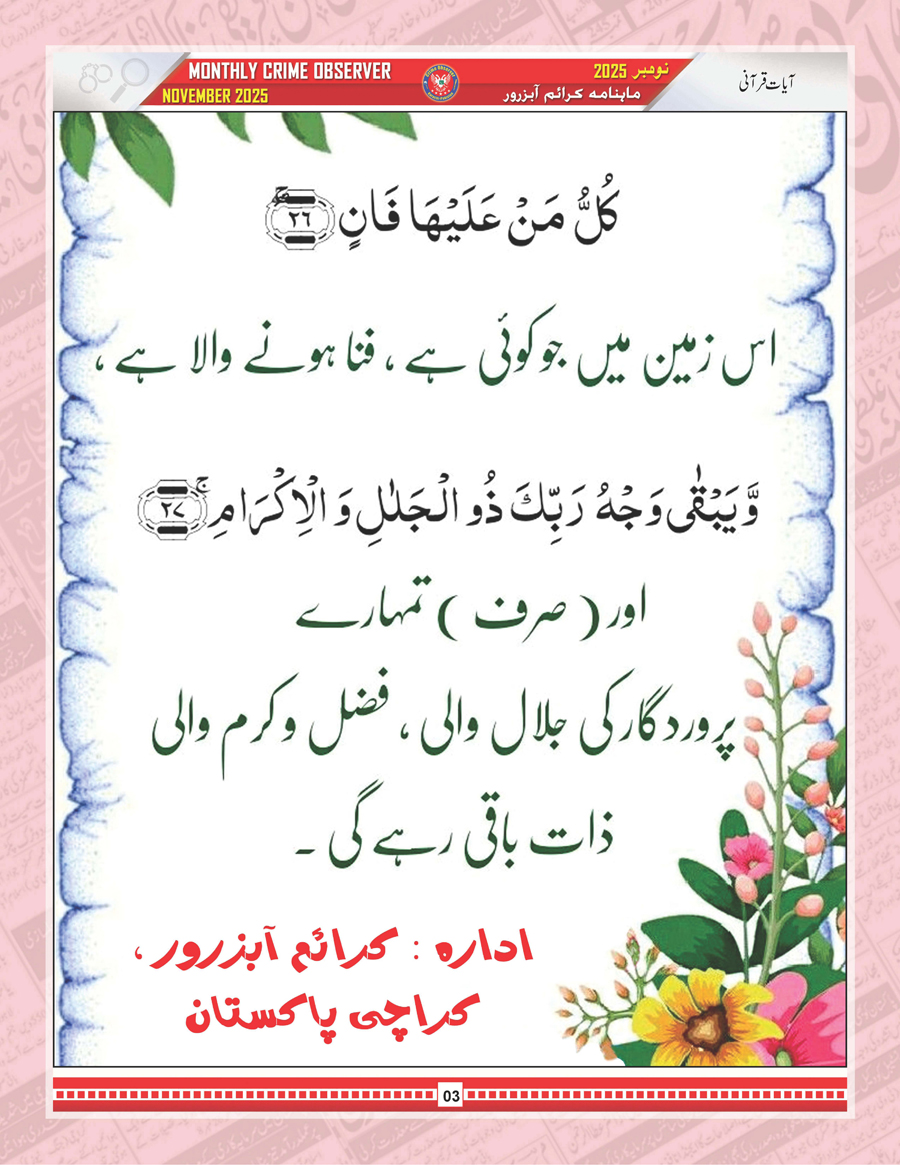 MONTHLY CRIME OBSERVER
NOVEMBER 2025
نومبر 2025
ماہنامہ کرائم آبزرور
آیات قرآنی
كُلُّ مَنْ عَلَيْهَا فَانٍ ۚۖ ٢٦
اس زمین میں جو کوئی ہے ، فنا ہونے والا ہے ،
وَّ يَبْقٰى وَجْهُ رَبِّكَ ذُو الْجَلٰلِ وَ الْاِكْرَامِ ۚ ٢٧
اور ( صرف ) تمہارے
پروردگار کی جلال والی ، فضل و کرم والی
ذات باقی رہے گی ۔
ادارہ : کرائم آبزرور ،
کراچی پاکستان
03